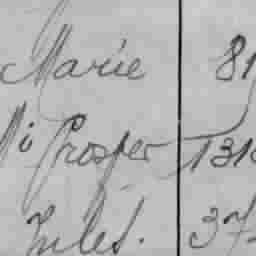 Marie 81
Prosper 131
Jules. 37